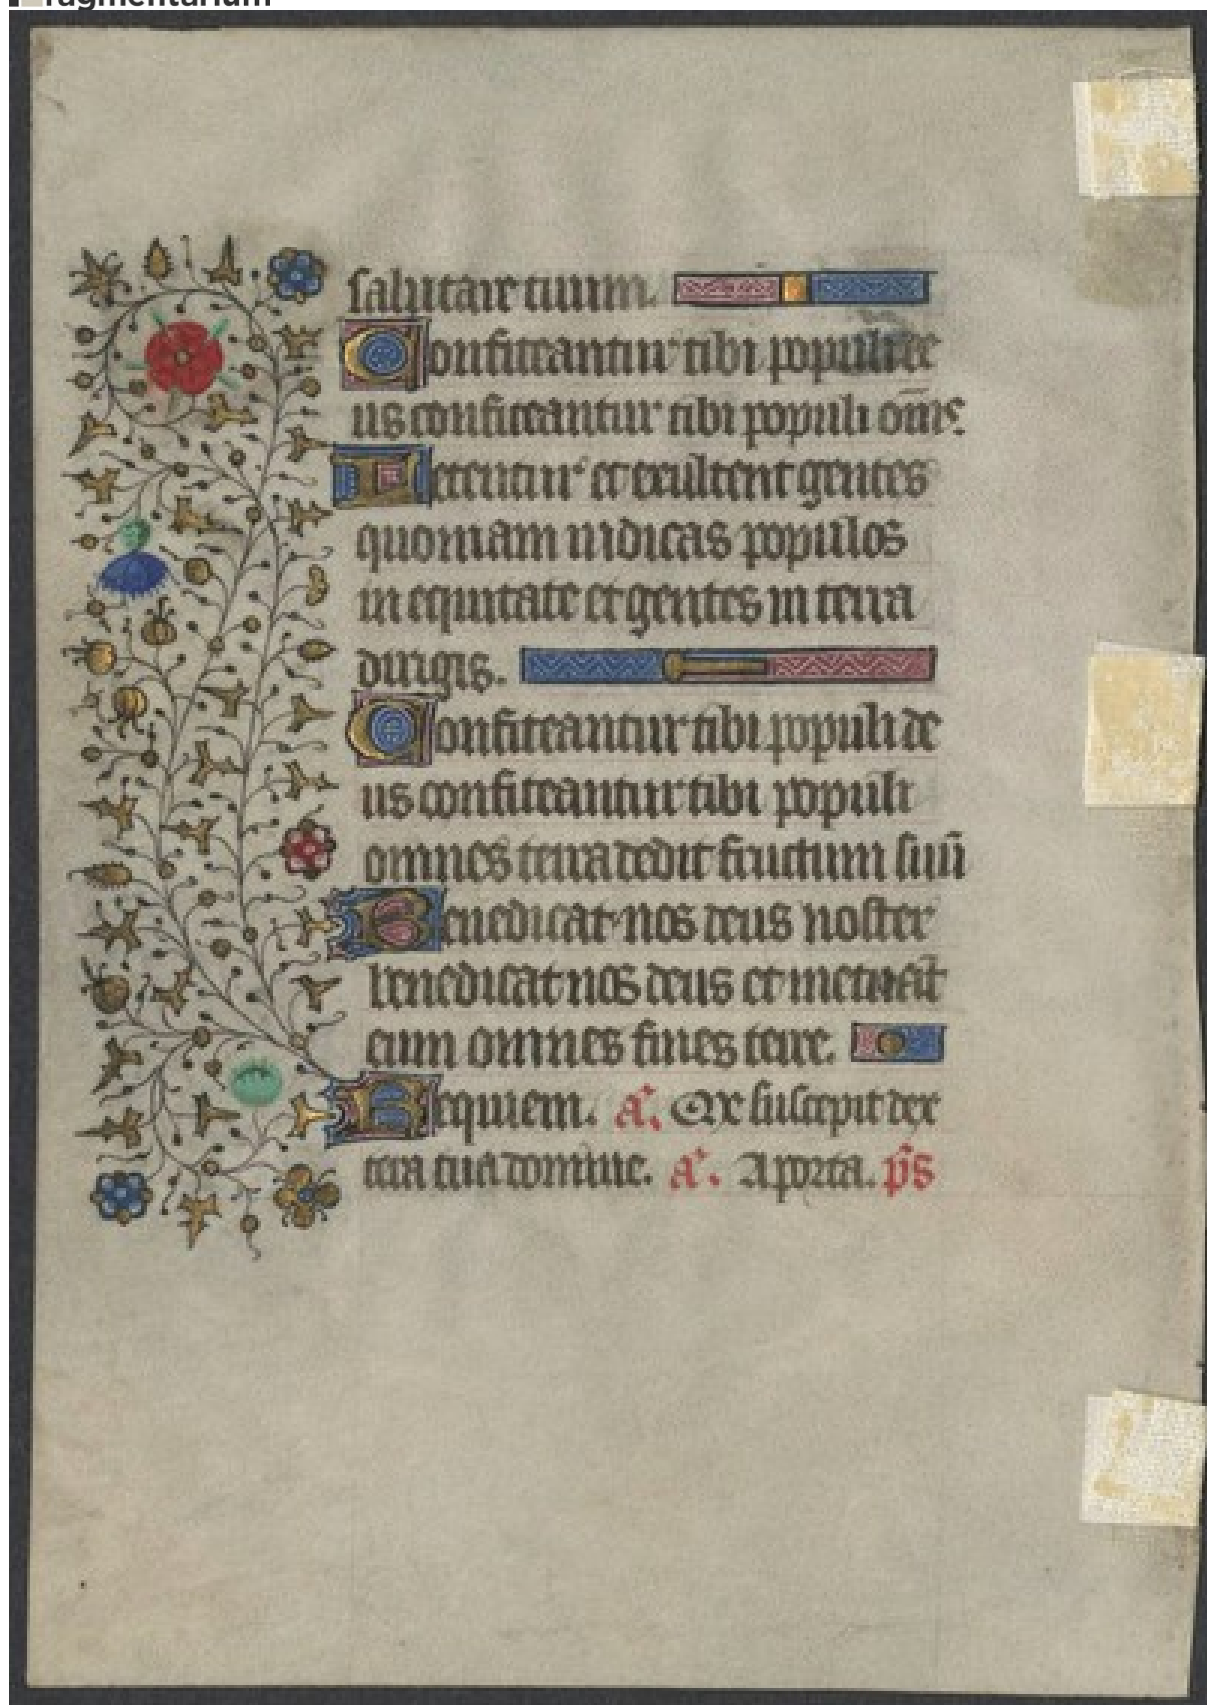 fragmentarium
salutare tuum.
Confiteantur tibi populi de
us confiteantur tibi populi om̅s.
Letentur et exultent gentes
quoniam iudicas populos
in equitate et gentes in terra
dirigis.
Confiteantur tibi populi de
us confiteantur tibi populi
omnes terra dedit fructum suu̅
Benedicat nos deus noster
benedicat nos deus et metua̅t
eum omnes fines terre.
Requiem. a. Me suscepit dex
tera tua domine. a. A porta. p̅s